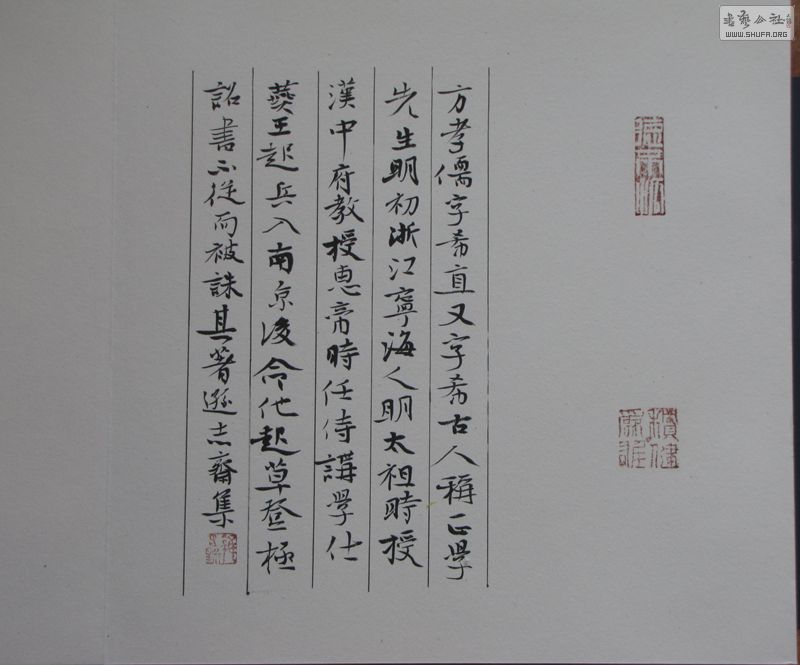 方孝儒字希直又字希古人稱正學
先生明初浙江寧海人明太祖時授
漢中府教授惠帝時任侍講學仕
燕王起兵入南京後令他起草登極
詔書不從而被誅其著遜志齋集
書藝公社
WWW.SHUFA.ORG